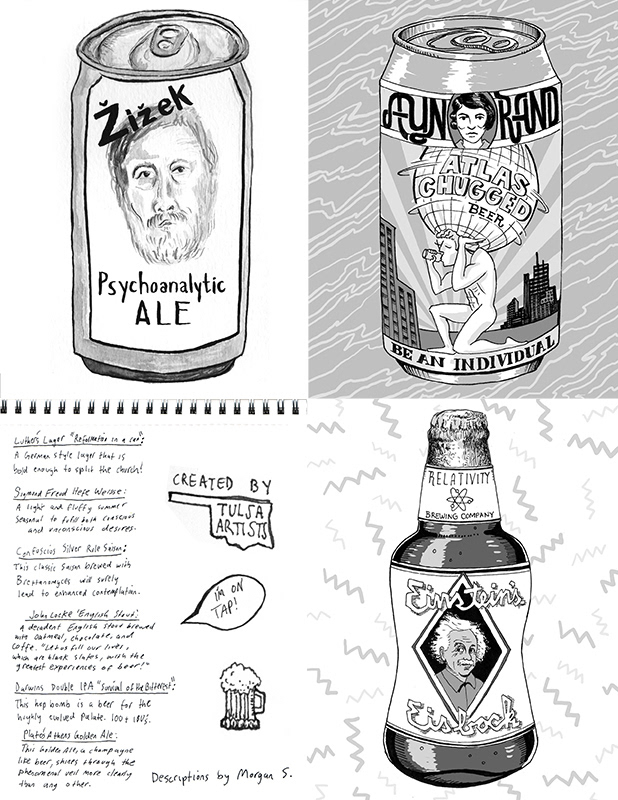 Žižek
Psychoanalytic
ALE
AYN RAND
ATLAS
CHUGGED
BEER
BE AN INDIVIDUAL
Luther's Lager "Reformation in a can":
A German style lager that is
bold enough to split the church!
Sigmund Freud Hefe Weisse:
A light and fluffy summer
seasonal to fulfill both conscious
and unconscious desires.
Confuscius Silver Rule Saison:
This classic Saison brewed with
Brettanomyces will surely
lead to enhanced contemplation.
John Locke 'English Stout':
A decadent English Stout brewed
with oatmeal, chocolate, and
coffe. "Let us fill our lives,
which are blank slates, with the
greatest experiences of beer!"
Darwins Double IPA "Survival of the Bitterest":
This hop bomb is a beer for the
highly evolved Palate. 100+ IBUs.
Plato's Athens Golden Ale:
This Golden Ale, a champagne
like beer, shines through the
phenomenal veil more clearly
than any other.
CREATED BY
TULSA
ARTISTS
I'M ON
TAP!
Descriptions by Morgan S.
RELATIVITY
BREWING COMPANY
Einstein's
Eisbock